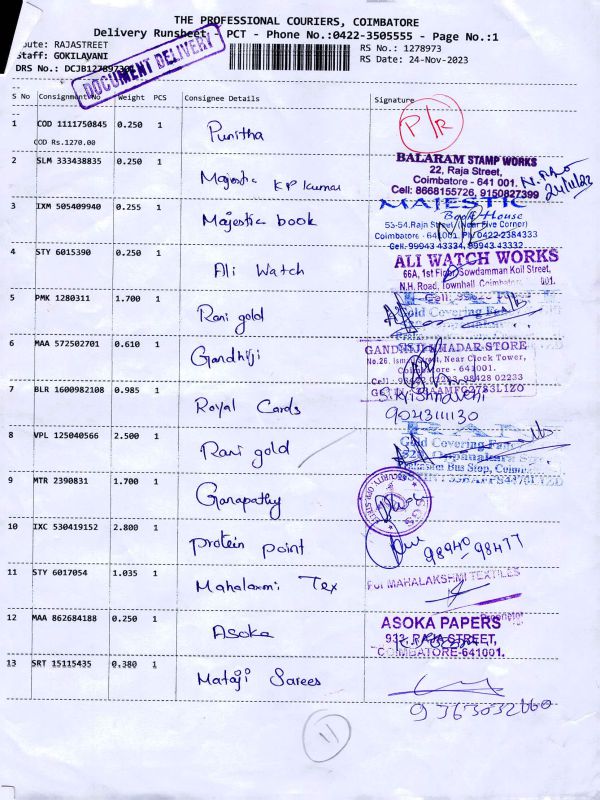 THE PROFESSIONAL COURIERS, COIMBATORE
Delivery Runsheet - PCT - Phone No.:0422-3505555 - Page No.:1
Route: RAJASTREET
RS No.: 1278973
Staff: GOKILAVANI
RS Date: 24-Nov-2023
DRS No.:
DOCUMENT DELIVERY
S No Consignment No Weight PCS Consignee Details Signature
1 COD 1111750845 0.250 1 Punitha P/R
COD Rs.1270.00
2 SLM 333438835 0.250 1 Majestic KP Kumar
BALARAM STAMP WORKS
22, Raja Street,
Coimbatore - 641 001.
Cell: 8668155726, 9150827399
24/11/23
3 IXM 505409940 0.255 1 Majestic book
MAJESTIC
Book House
53-54, Raja Street, (Near Five Corner)
Coimbatore - 641 001. Ph: 0422-2384333
Cell: 99943 43334, 99943 43332
4 STY 6015390 0.250 1 Ali Watch
ALI WATCH WORKS
66A, 1st Floor, Sowdamman Koil Street,
N.H. Road, Townhall, Coimbatore 001.
5 PMK 1280311 1.700 1 Rani gold
Gold Covering
6 MAA 572502701 0.610 1 Gandhiji
GANDHIJI KHADAR STORE
Near Clock Tower,
Coimbatore - 641001.
02233
7 BLR 1600982108 0.985 1 Royal Cards
S.Krishnaveni
9043111130
8 VPL 125040566 2.500 1 Rani gold
Gold Covering
Bus Stop,
9 MTR 2390831 1.700 1 Ganapathy
SECURITY
10 IXC 530419152 2.800 1 Protein point
98940 98477
11 STY 6017054 1.035 1 Mahalaxmi Tex
For MAHALAKSHMI TEXTILES
12 MAA 862684188 0.250 1 Asoka
ASOKA PAPERS
RAJA STREET,
COIMBATORE-641001.
13 SRT 15115435 0.380 1 Mataji Sarees
9363032660
11